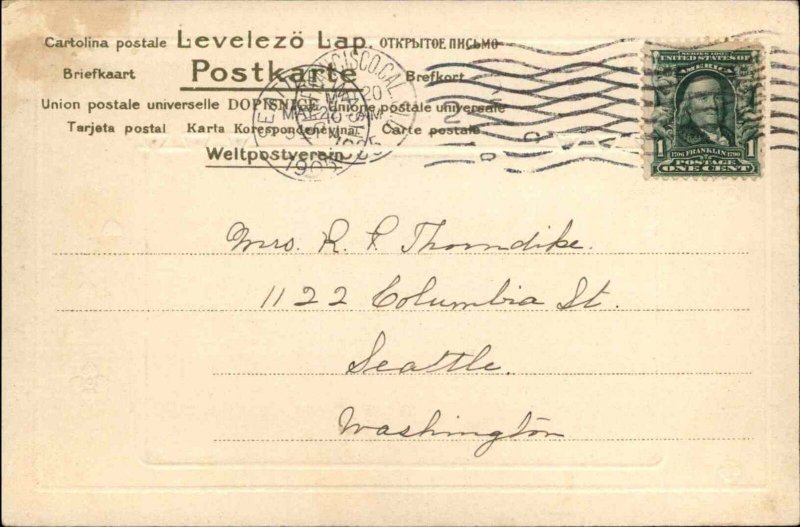 Cartolina postale Levelező Lap. ОТКРЫТОЕ ПИСЬМО
Briefkaart Postkarte Brefkort
Union postale universelle DOPISNICE Unione postale universale
Tarjeta postal Karta Korespondencyjna Carte postale
Weltpostverein
FRANCISCO, CAL.
MAR 20
1905
SERIES 1902
UNITED STATES OF
AMERICA
1706 FRANKLIN 1790
1 POSTAGE 1
ONE CENT
Mrs. R. L. Thorndike.
1122 Columbia St.
Seattle.
Washington